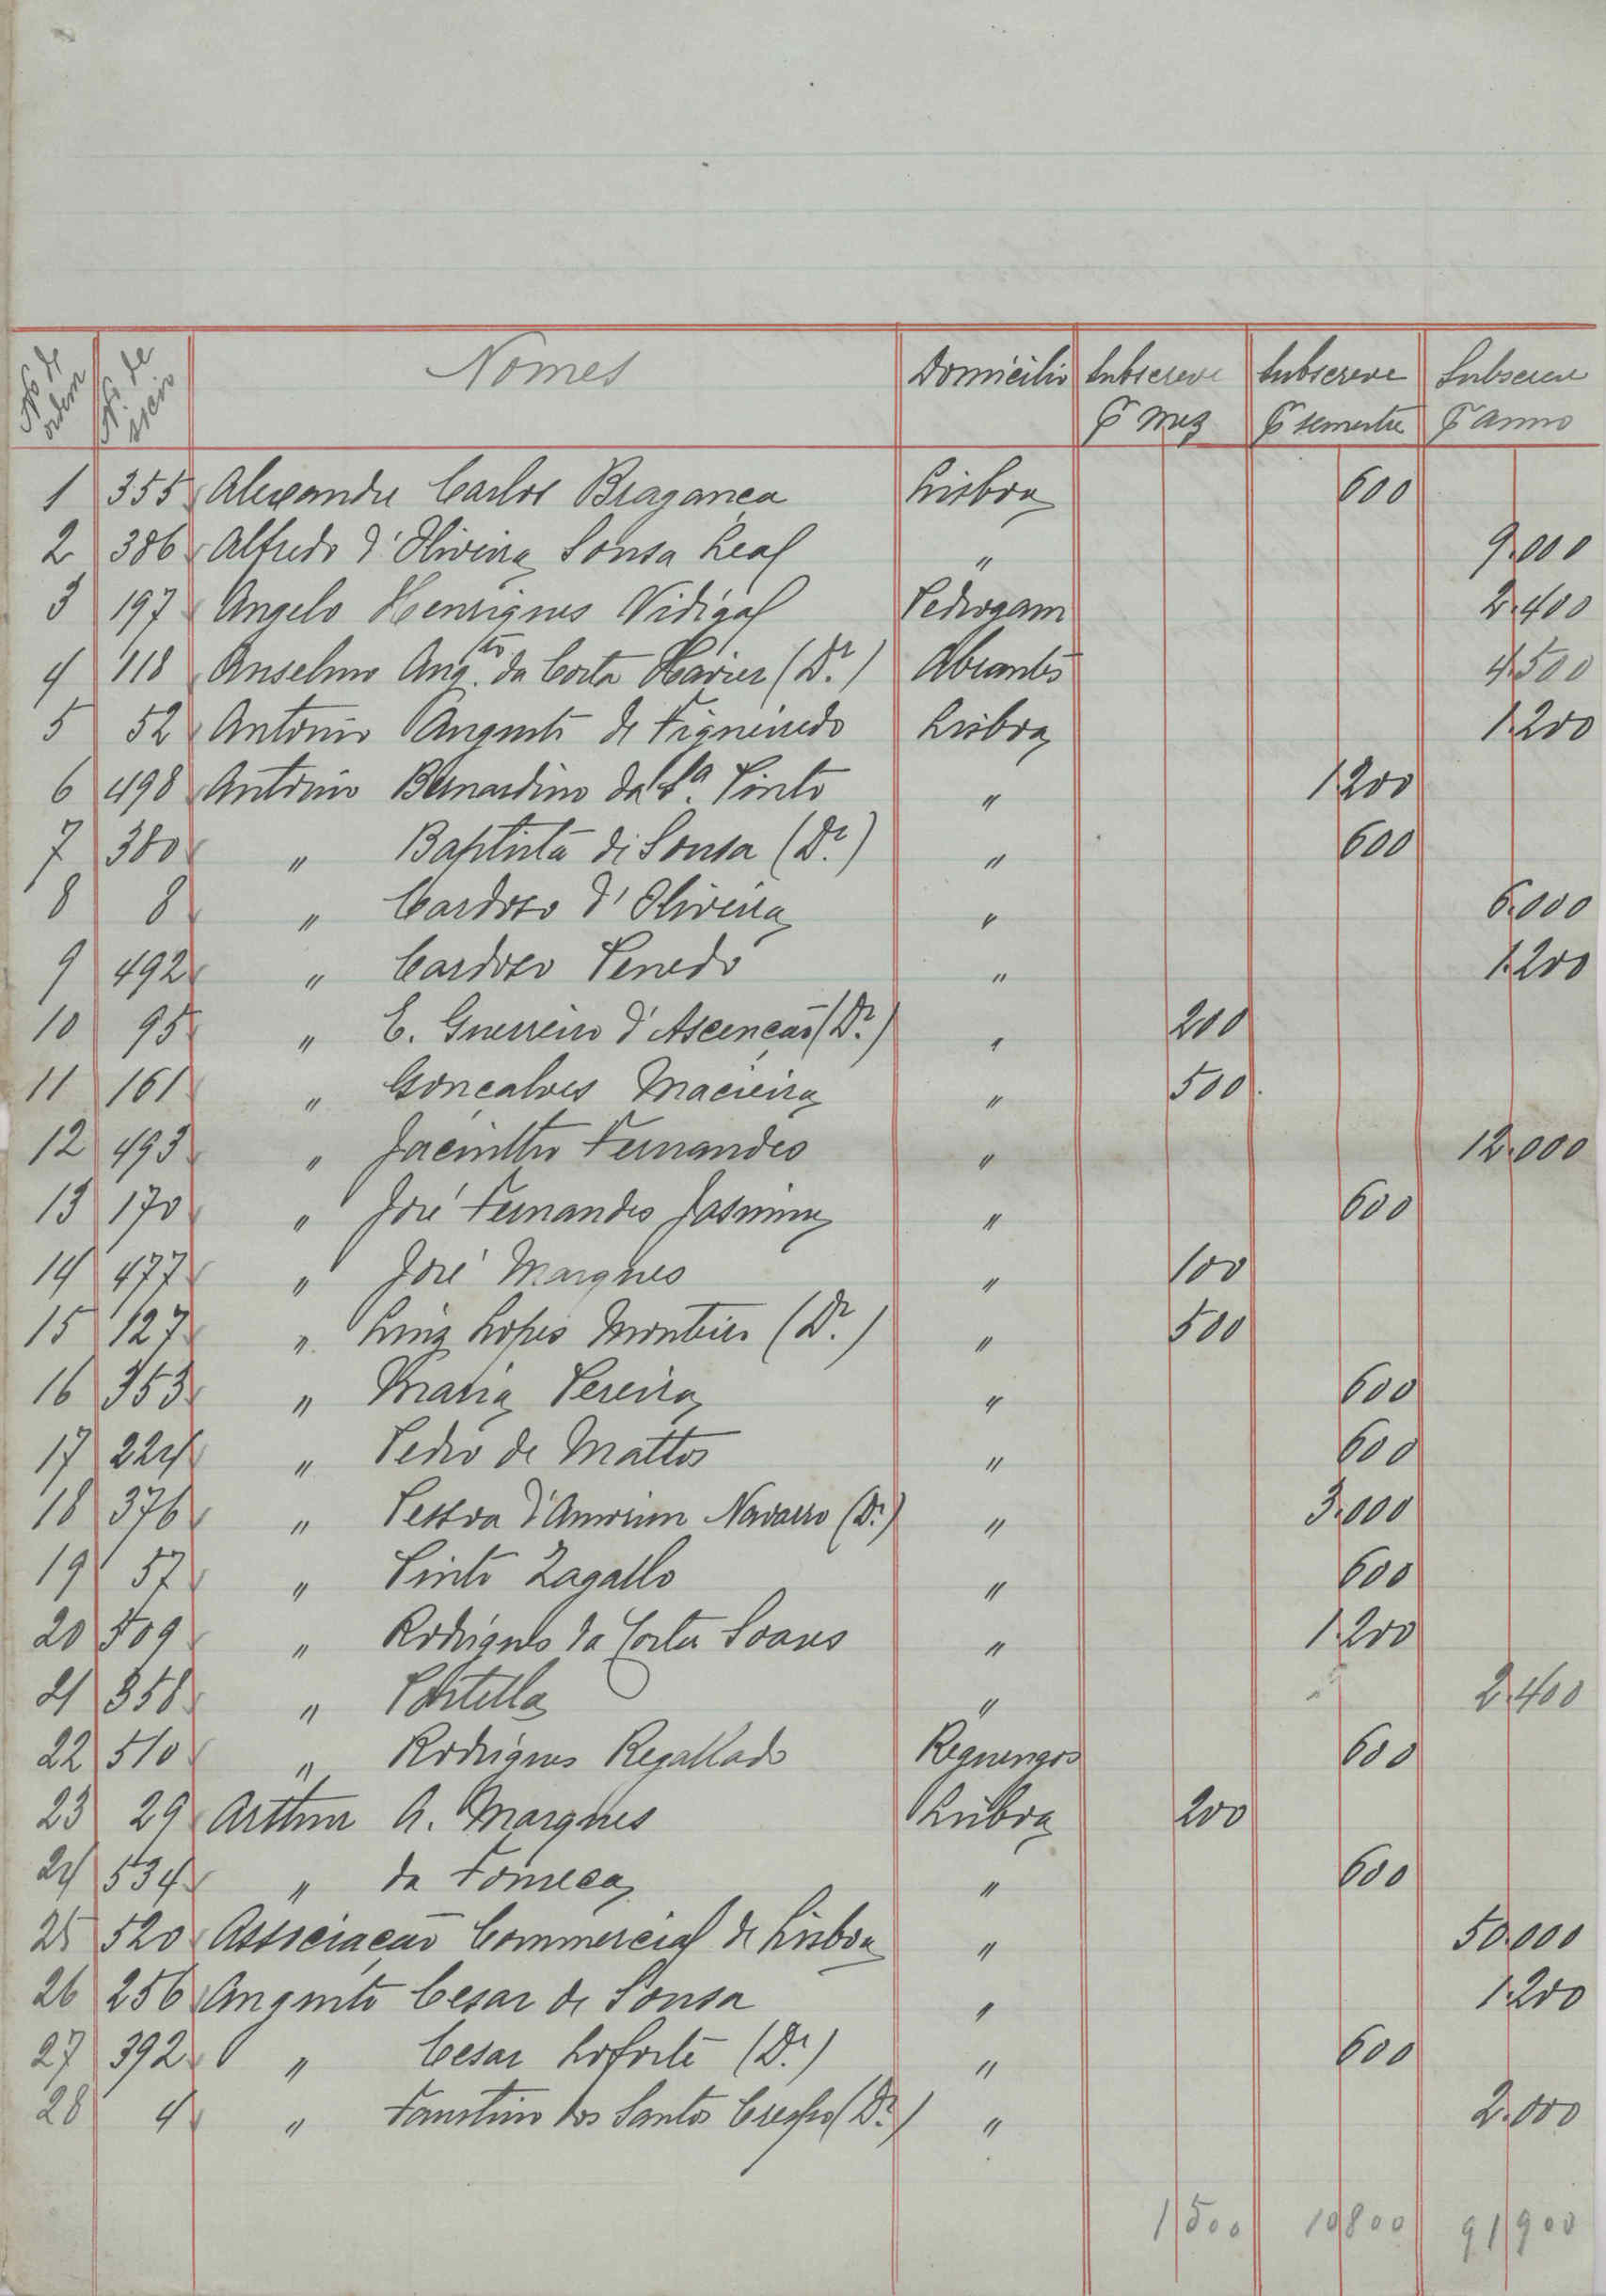 Nº de ordem Nº de socio Nomes Domicilio Subscreve Subscreve Subscreve
P mez P semestre P anno
1 355 Alexandre Carlos Bragança Lisboa 600
2 386 Alfredo d'Oliveira Sousa Leal " 9.000
3 197 Angelo Henriques Vidigal Pedrogam 2.400
4 118 Anselmo Augto. da Costa Xavier (Dr.) Abrantes 4.500
5 52 Antonio Augusto de Figueiredo Lisboa 1.200
6 498 Antonio Bernardino da Sª. Pinto " 1.200
7 380 " Baptista de Sousa (Dr.) " 600
8 8 " Cardoso d'Oliveira " 6.000
9 492 " Cardoso Penedo " 1.200
10 95 " E. Guerreiro d'Ascenção (Dr.) " 200
11 161 " Gonçalves Macieira " 500
12 493 " Jacintho Fernandes " 12.000
13 170 " José Fernandes Jasmim " 600
14 477 " José Marques " 100
15 127 " Luiz Lopes Monteiro (Dr.) " 500
16 353 " Maria Pereira " 600
17 224 " Pedro de Mattos " 600
18 376 " Pessoa d'Amorim Navarro (Dr.) " 3.000
19 57 " Pinto Zagallo " 600
20 509 " Rodrigues da Costa Soares " 1.200
21 358 " Portella " 2.400
22 510 " Rodrigues Regallado Reguengos 600
23 29 Arthur A. Marques Lisboa 200
24 534 " da Fonseca " 600
25 520 Associação Commercial de Lisboa " 50.000
26 256 Augusto Cesar de Sousa " 1.200
27 392 " Cesar Loforte (Dr.) " 600
28 4 " Faustino dos Santos Crespo (Dr.) " 2.000
1500 10800 91900